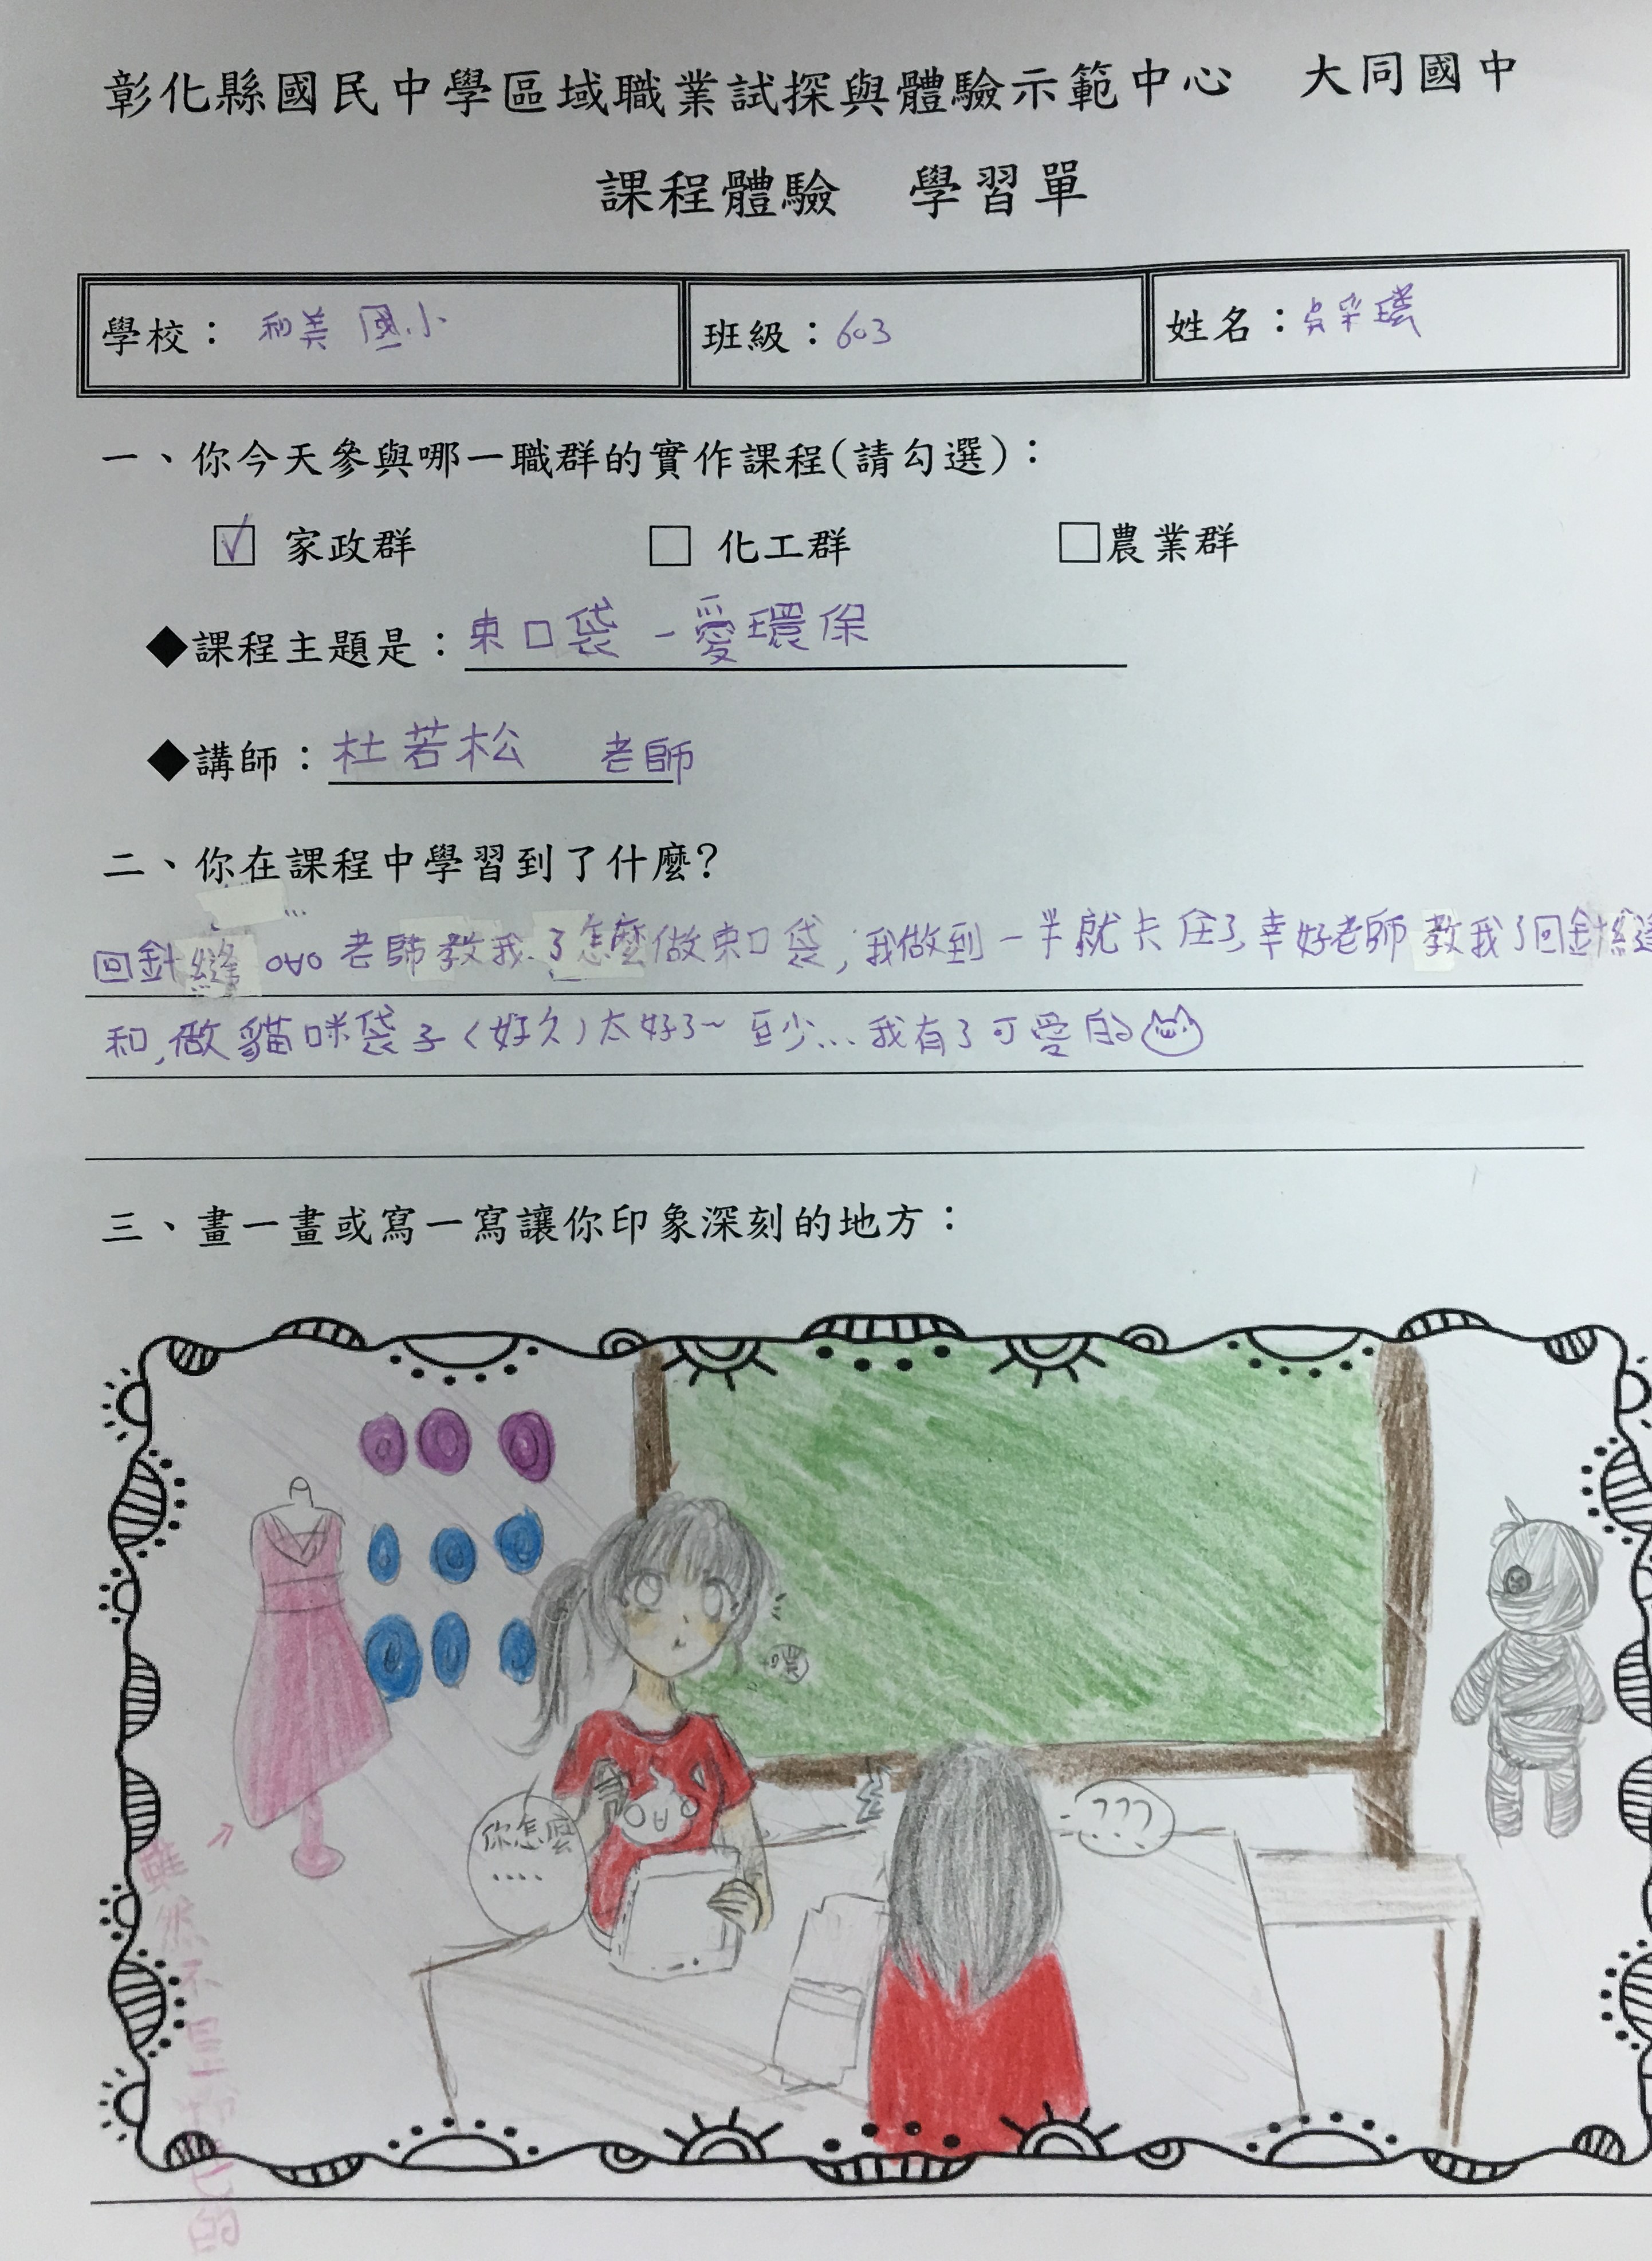 彰化縣國民中學區域職業試探與體驗示範中心　大同國中
課程體驗　學習單
學校：和美國小
班級：603
姓名：吳采璞
一、你今天參與哪一職群的實作課程(請勾選)：
☑ 家政群　□ 化工群　□農業群
◆課程主題是：束口袋-愛環保
◆講師：杜若松 老師
二、你在課程中學習到了什麼?
回針縫 老師教我了怎麼做束口袋,我做到一半就卡住了,幸好老師教我了回針縫
和,做貓咪袋子(好久)太好了~至少...我有了可愛的
三、畫一畫或寫一寫讓你印象深刻的地方：
你怎麼
....
???
雖然不是 的